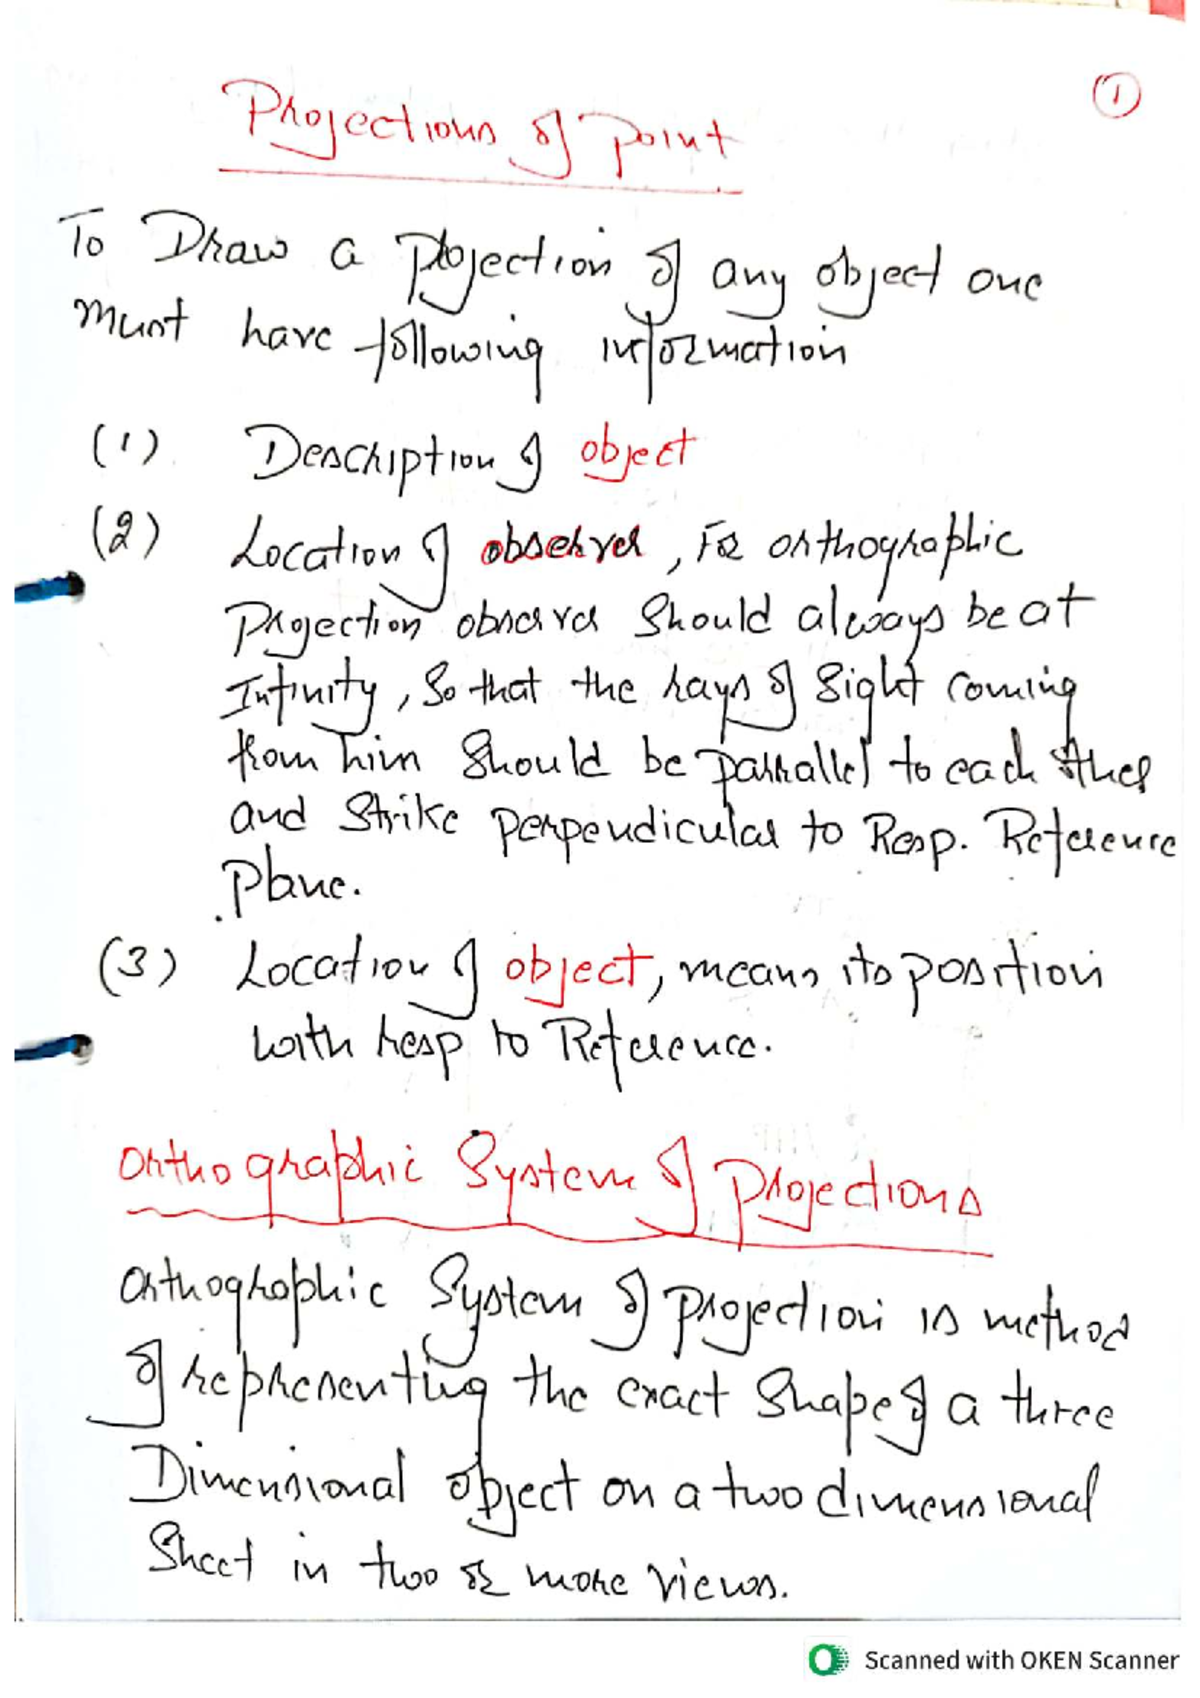 ①
Projections of point
To Draw a projection of any object one
must have following information
(1) Description of object
(2) Location of observer, For orthographic
Projection observer should always be at
Infinity, So that the rays of sight coming
from him should be parrallel to each other
and strike perpendicular to Resp. Reference
Plane.
(3) Location of object, means its position
with resp to Reference.
Orthographic System of projections
Orthographic System of projection is method
of representing the exact shape of a three
Dimensional object on a two dimensional
Sheet in two or more views.
Scanned with OKEN Scanner